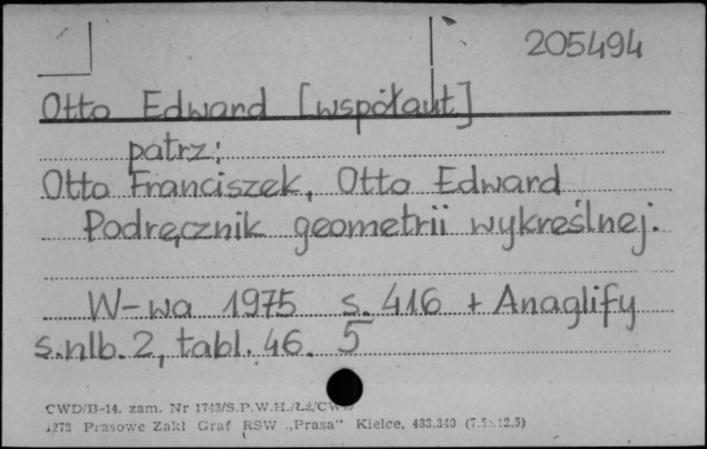 205494
Otto Edward [współaut]
patrz:
Otto Franciszek, Otto Edward
Podręcznik geometrii wykreślnej.
W-wa 1975 s. 416 + Anaglify
s.nlb. 2, tabl. 46. 5
CWD/B-14. zam. Nr 1743/S.P.W.H./Łż/CWD
1273 Prasowe Zakł Graf RSW „Prasa" Kielce, 433.340 (7.5×12,5)